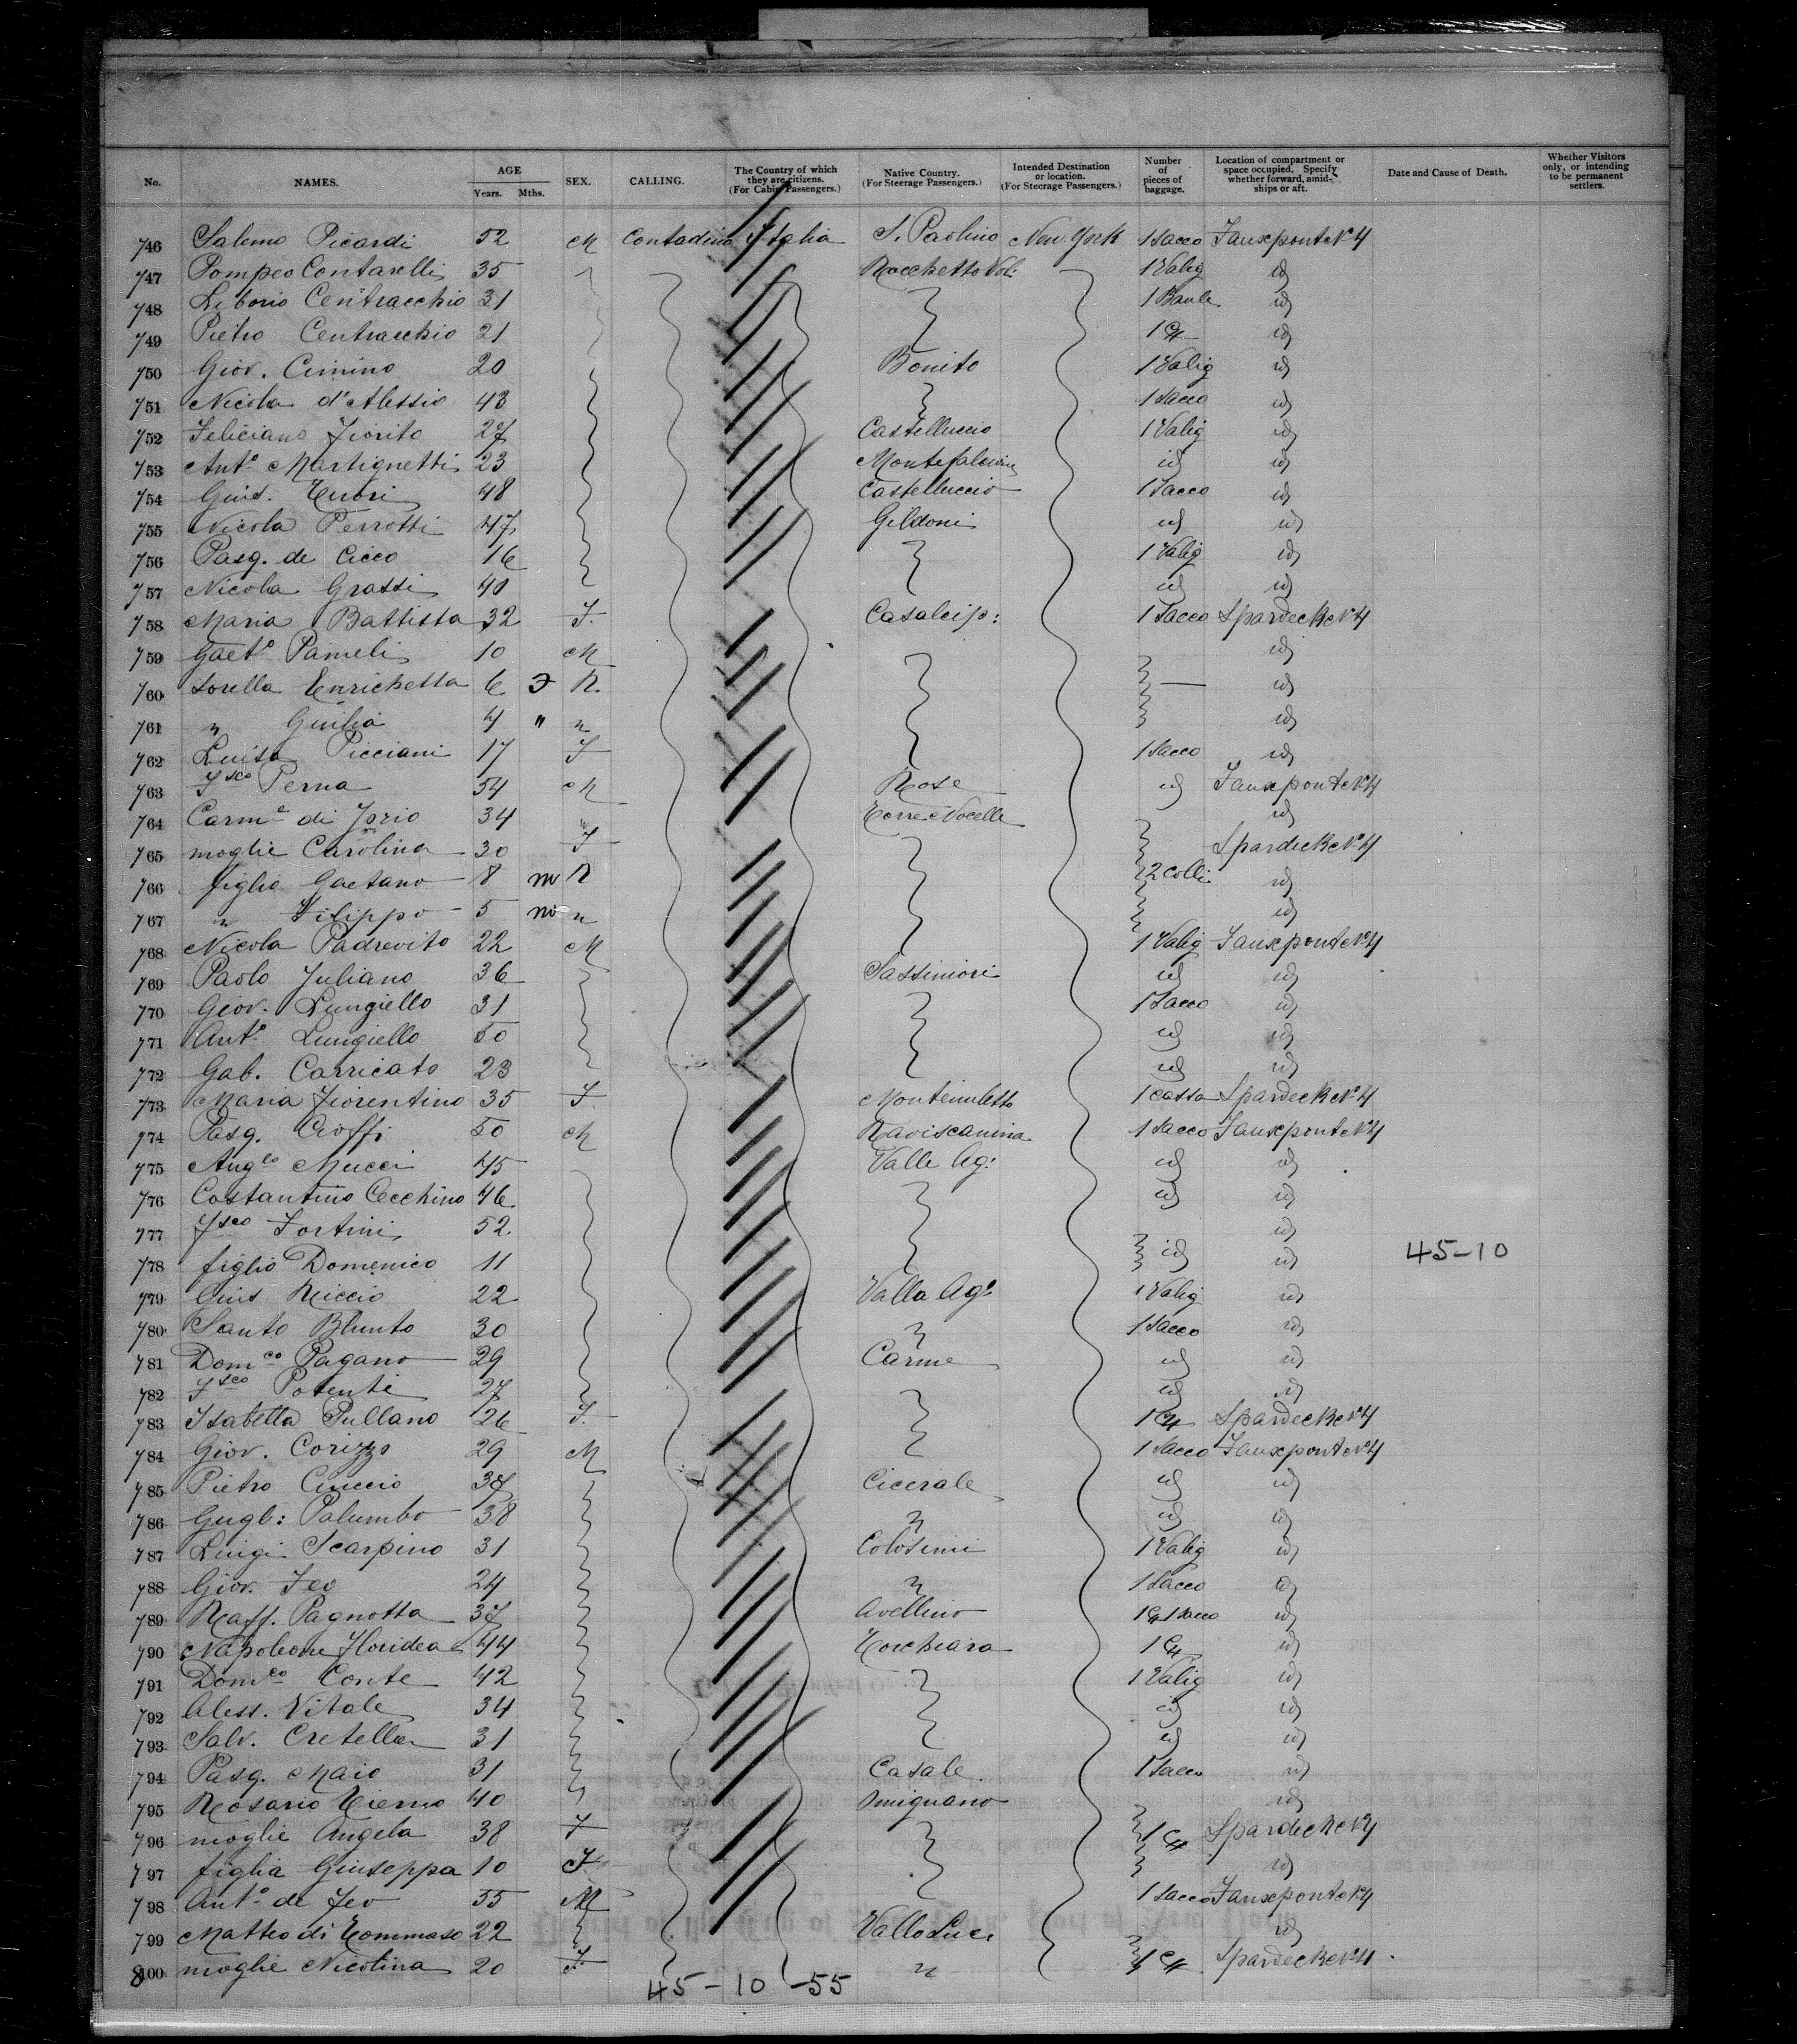 No. NAMES. AGE Years. Mths. SEX. CALLING. The Country of which they are citizens. (For Cabin Passengers.) Native Country. (For Steerage Passengers.) Intended Destination or location. (For Steerage Passengers.) Number of pieces of baggage. Location of compartment or space occupied. Specify whether forward, amidships or aft. Date and Cause of Death. Whether Visitors only, or intending to be permanent settlers.
746 Salerno Picardi 52 M Contadino Italia S. Paolino New York 1 Sacco Fauxponte N 4
747 Pompeo Contarelli 35 Rocchetto Vol: 1 Valig id
748 Liborio Centracchio 31 1 Baule id
749 Pietro Centracchio 21 id
750 Giov. Cimino 20 Bonito 1 Valig id
751 Nicola d'Alessio 43 1 Sacco id
752 Feliciano Fiorito 27 Castelluccio 1 Valig id
753 Anto Martignetti 23 id id
754 48 Castelluccio 1 Sacco id
755 Nicola Perrotti 47 Gildoni id id
756 Pasq. de Cicco 16 1 Valig id
757 Nicola Grassi 40 id id
758 Maria Battista 32 F. Casalcip: 1 Sacco Spardeck N 4
759 Gaeto Pameli 10 M id
760 Sorella Enrichetta 6 id
761 " Giulia 4 " " id
762 Luisa Picciani 17 F 1 Sacco id
763 Fsco Perna 54 M Rose id Fauxponte N 4
764 Carme di 34 " Torre Nocelle id
765 moglie Carolina 30 F Spardeck N 4
766 figlio Gaetano 8 m 2 Colli id
767 " Filippo 5 m " id
768 Nicola Padrevito 22 M 1 Valig Fauxponte N 4
769 Paolo Juliano 36 Sassinori id id
770 Giov. Lungiello 31 1 Sacco id
771 Anto Lungiello 50 id id
772 Gab. Carricato 23 id id
773 Maria Fiorentino 35 F. Montemiletto 1 cassa Spardeck N 4
774 Pasq. Cioffi 50 M Raviscanina 1 Sacco Fauxponte N 4
775 Anglo Mucci 45 Valle Ag: id id
776 Costantino Cecchino 46 id id
777 Fsco Fortini 52 id
778 figlio Domenico 11 id id 45-10
779 Gius. Riccio 22 Valla Ag: 1 Valig id
780 Santo Blunto 30 " 1 Sacco id
781 Domco Pagano 29 Carme id id
782 Fsco Potenti 27 id id
783 Isabella Pullano 26 F. Spardeck N 4
784 Giov. Corizzo 29 M 1 Sacco Fauxponte N 4
785 Pietro Ciuccio 37 Cicerale id id
786 Gugl: Palumbo 38 " id id
787 Luigi Scarpino 31 Colosimi 1 Valig id
788 Giov. Feo 24 " 1 Sacco id
789 Raff. Pagnotta 37 Avellino 1 Sacco id
790 Napoleone Floridea 44 Torchiara id
791 Domco Conte 42 1 Valig id
792 Aless. Vitale 34 id id
793 Salv. Cretella 31 id id
794 Pasq. Maio 31 Casale 1 Sacco id
795 Rosario Tierno 40 Omignano id
796 moglie Angela 38 F Spardeck N 4
797 figlia Giuseppa 10 F id
798 Anto de Feo 55 M 1 Sacco Fauxponte N 4
799 Matteo di Tommaso 22 Vallo Luc. id
800 moglie Nicolina 20 F. " Spardeck N 4
45-10-55